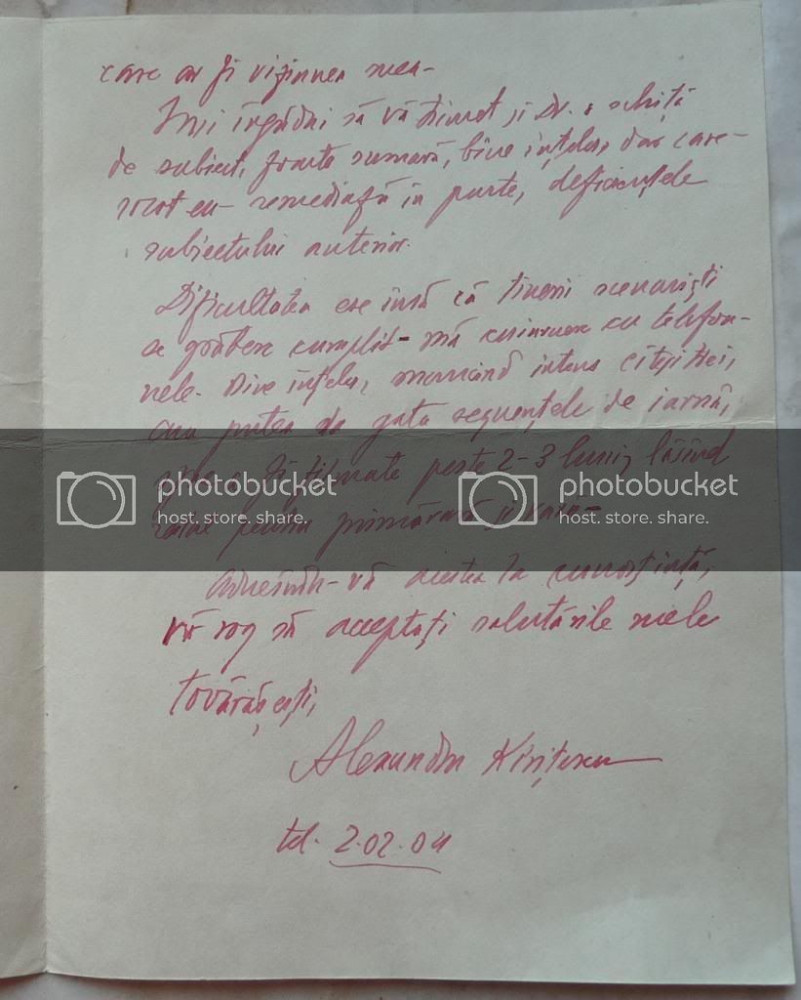 care ar fi viziunea mea-
Îmi îngădui să vă trimet și Dv. o schiță
de subiect, foarte sumară, bine înțeles, dar care-
socot eu- remediază în parte, deficiențele
subiectului anterior.
Dificultatea este însă că tinerii scenariști
se grăbesc cumplit- mă cu telefoa-
nele. Bine înțeles, muncind intens
putea da gata secvențele de iarnă,
filmate peste 2-3 luni, lăsând
pentru primăvară și vară-
photobucket photobucket
host. store. share. host. store. share.
vă acestea la cunoștință,
vă rog să acceptați salutările mele
tovărășești,
Alexandru Kirițescu
tel. 2.02.04